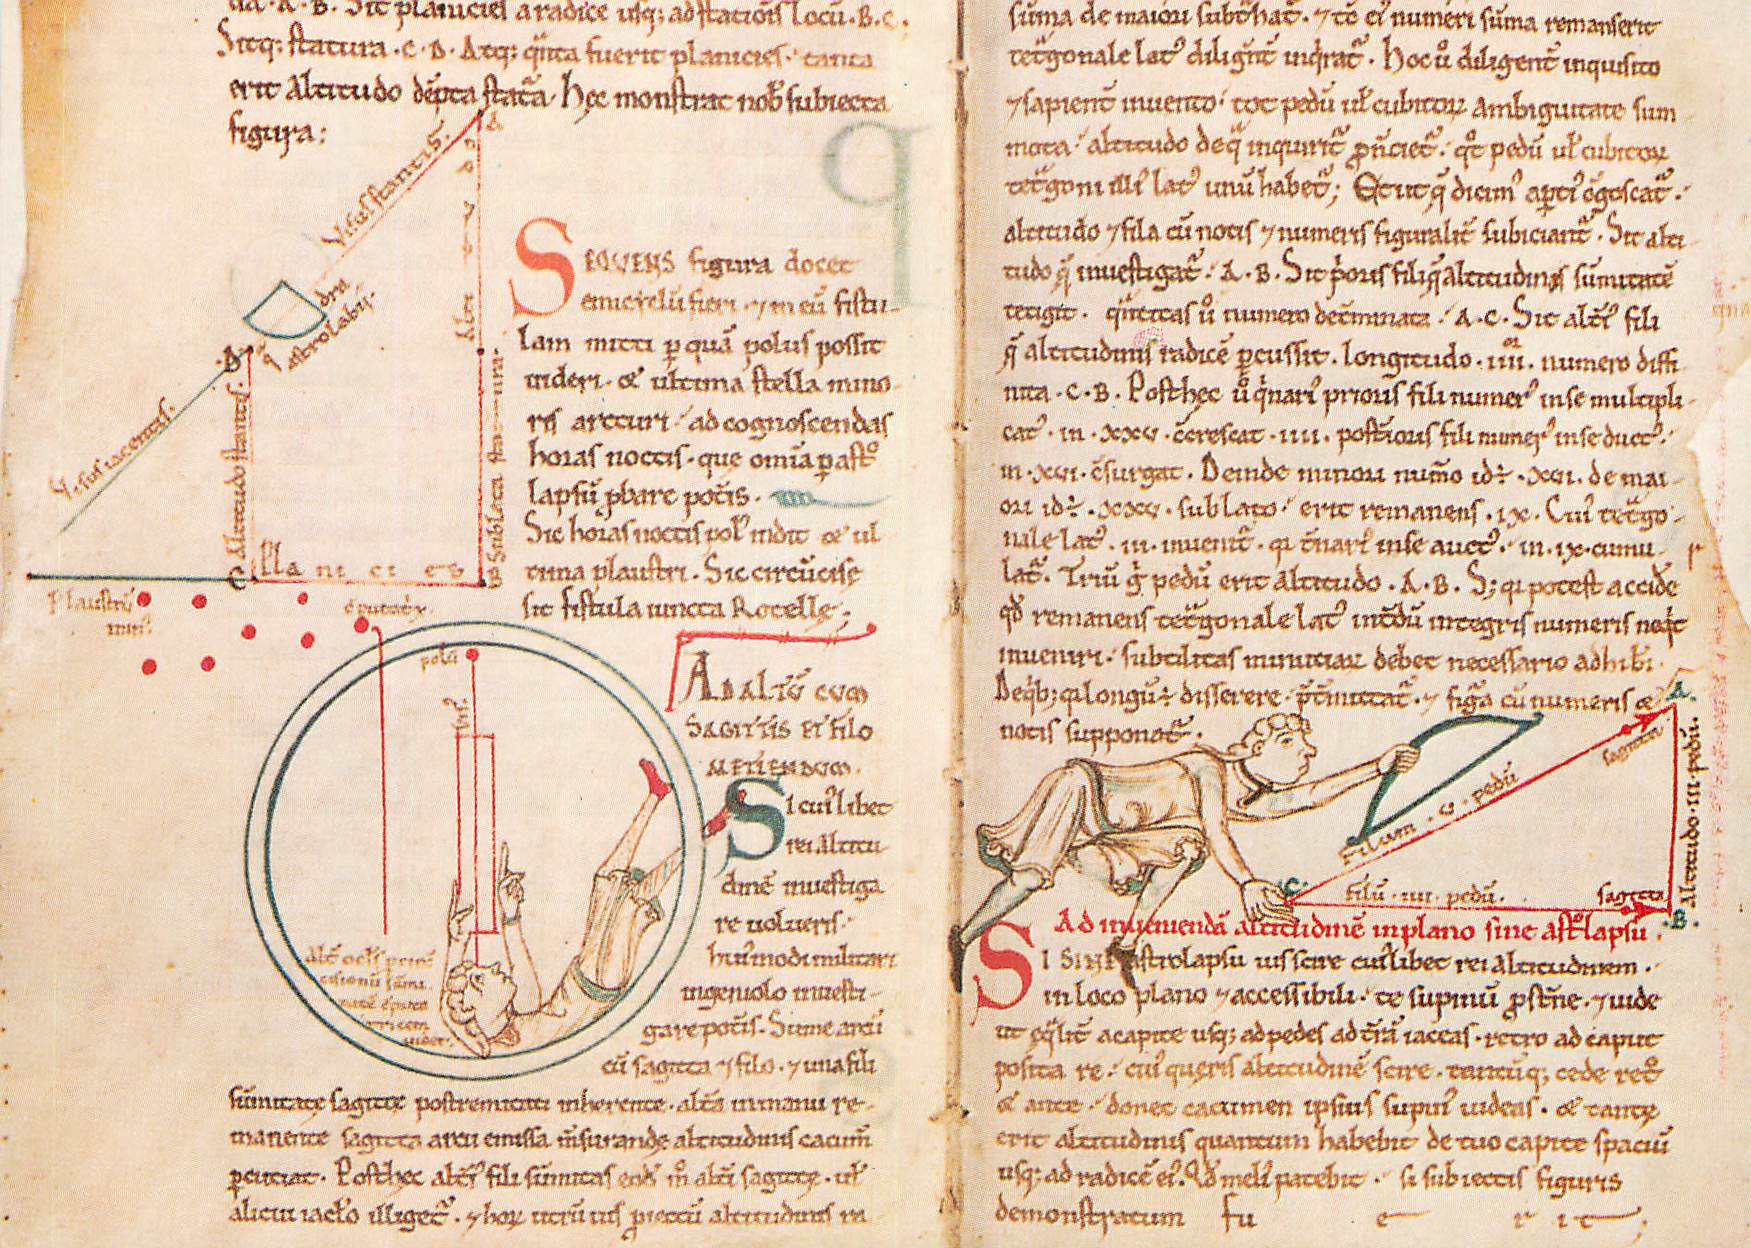 da · A · B · Sit planiciei a radice usq; ad stationis locū · B · C ·
Sitq; statura · C · D · Atq; quanta fuerit planicies · tanta
erit Altitudo dēpta stat̄a · hęc monstrat nob̄ subiecta
figura:
A
Visus stantis.
B
Altitudo stantis.
Visus iacentis.
astrolabii.
Sublata sta tura.
C
Planicies
B
SEQVENS figura docet
fieri · ⁊ in eū fistu
lam mitti p quā polus possit
uideri · & ultima stella mino
ris arcturi · ad cognoscendas
horas noctis · que omīa p astro
lapsū pbare potis ·
Sic horas noctis pol' indit & ul
tima plaustri · Sic circūcise
sit fistula iuncta Rotelle;
Plaustrū
min'.
ēputatr̄.
polū
ADALTŪ CUM
SAGITIS ET FILO
METIENDUM.
Si cui'libet
rei Altitu
dinē inuestiga
re uolueris ·
hui'modi militari
ingeniolo inuesti
gare potis · Sume arcū
cū sagitta ⁊ filo · ⁊ una fili
sūmitate sagittę postremitati inherente · alt̄a in manu re
manente sagitta arcu emissa m̄surandę altitudinis cacum̄
pcutiat · Posthec alt̄i' fili sūmitas eod̄ m̄o alt̄i sagittę · ul'
alicui iact̄o illiget̄ · ⁊ hoꝝ utrū uis piectū altitudinis ra
sūma de maiori subt̄hat̄ · ⁊ t̄c ei' numeri sūma remanserit
tet̄gonale lat' diligēt̄ inq̄rat̄ · Hoc ū diligent̄ inquisito
⁊ sapient̄ inuento · tot pedū ul' cubitoꝝ ambiguitate sum
mota · altitudo de q̄ inquirit̄ p̄nūciet̄ · q̄t pedū ul' cubitoꝝ
tet̄goni illi' lat' unū habet̄; Et ut q̄ dicim' apti' c̄goscat̄ ·
altitudo ⁊ fila cū notis ⁊ numeris figuralit̄ subiciant̄ · Sit alti
tudo q̄ inuestigat̄ · A · B · Sit p̄oris fili q̄ altitudinis sūmitatē
tetigit · q̄ntitas ū numero det̄minata · A · C · Sit alt̄i' fili
q̄ altitudinis radicē pcussit · longitudo · iiii · numero diffi
nita · C · B · Posthec ū q̄nari' prioris fili numer' in se multipli
cat' · in · xxv · c̄crescat · iiii · post̄ioris fili numer' in se duct' ·
in · xvi · c̄surgat · Deinde minori num̄o id÷ · xvi · de mai
ori id÷ · xxv · sublato · erit remanens · ix · Cui' tet̄go
nale lat' · iii · inuenit̄ · qi t̄nari' in se auct' · in · ix · cumu
lat̄ · Triū g̊ pedū erit altitudo · A · B · S; qi potest accide
q̄d remanens tet̄gonale lat' int̄dū integris numeris neq̄t
inueniri · subtilitas minutiaꝝ debet necessario adhib̄i ·
De q̄b; qi longū÷ disserere · p̄t̄mittat̄ · ⁊ fig̊a cū numeris &
notis supponat̄ ·
A ·
sagitta
Filum · v · pedū
Altitudo · iii · pedū ·
C ·
filū · iiii · pedū ·
sagitta
· B ·
Ad inueniendā altitudinē in plano sine astrolapsu ·
SI SINE astrolapsu uis scire cui'libet rei Altitudinem ·
in loco plano ⁊ accessibili · te supinū p̄st̄ne · ⁊ uide
ut eq̄lit̄ a capite usq; ad pedes ad t̄rā iaceas · retro ad caput
posita re · cui' queris altitudinē scire · tantūq; cede retro
& ante · donec cacumen ipsius supin' uideas · & tante
erit altitudinis quantum habebit de tuo capite spaciū
usq; ad radicē ei'. Qd meli' patebit · si subiectis figuris
demonstratum fu e r it;